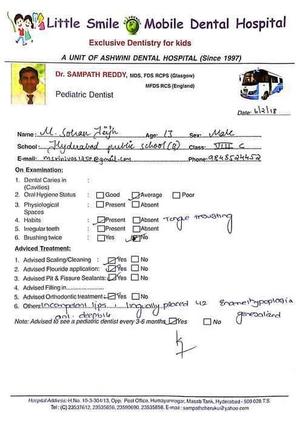 Little Smile Mobile Dental Hospital
Exclusive Dentistry for kids
A UNIT OF ASHWINI DENTAL HOSPITAL (Since 1997)
Dr. SAMPATH REDDY, MDS, FDS RCPS (Glasgow)
MFDS RCS (England)
Pediatric Dentist
Date: 6/2/18
Name: M. Sohan Age: 13 Sex: Male
School: Hyderabad public school(R) Class: VIII C
E-mail: Phone: 9848524452
On Examination:
1. Dental Caries in :
(Cavities)
2. Oral Hygiene Status : Good Average Poor
3. Physiological : Present Absent
Spaces
4. Habits : Present Absent Tongue thrusting
5. Irregular teeth : Present Absent
6. Brushing twice : Yes No
Adviced Treatment:
1. Advised Scaling/Cleaning : Yes No
2. Advised Flouride application : Yes No
3. Advised Pit & Fissure Sealants : Yes No
4. Advised Filling in
5. Advised Orthodontic treatment Yes No
6. Others Incompetent lips, lingually placed 42 Enamel hypoplasia
generalized
Note: Advised to see a pediatric dentist every 3-6 months Yes No
Hospital Address: H.No. 10-3-304/13, Opp. Post Office, Humayunnagar, Masab Tank, Hyderabad - 500 028 T.S.
Tel: (C) 23537612, 23535656, 23590690, 23535858, E-mail : sampathcheruku@yahoo.com